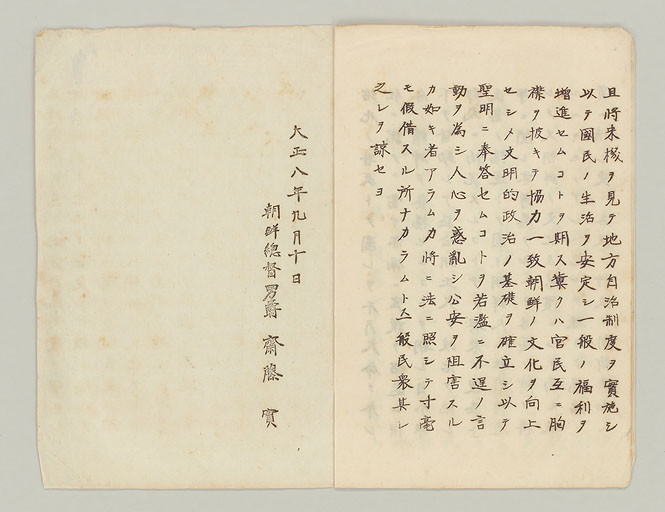 且將来機ヲ見テ地方自治制度ヲ實施シ
以テ國民ノ生活ヲ安定シ一般ノ福利ヲ
增進セムコトヲ期ス冀クハ官民互ニ胸
襟ヲ披キテ協力一致朝鮮ノ文化ヲ向上
セシメ文明的政治ノ基礎ヲ確立シ以テ
聖明ニ奉答セムコトヲ若濫ニ不逞ノ言
動ヲ為シ人心ヲ惑亂シ公安ヲ阻害スル
カ如キ者アラムカ將ニ法ニ照シテ寸毫
モ假借スル所ナカラムトス一般民衆其レ
之レヲ諒セヨ
大正八年九月十日
朝鮮總督男爵 齋藤 實